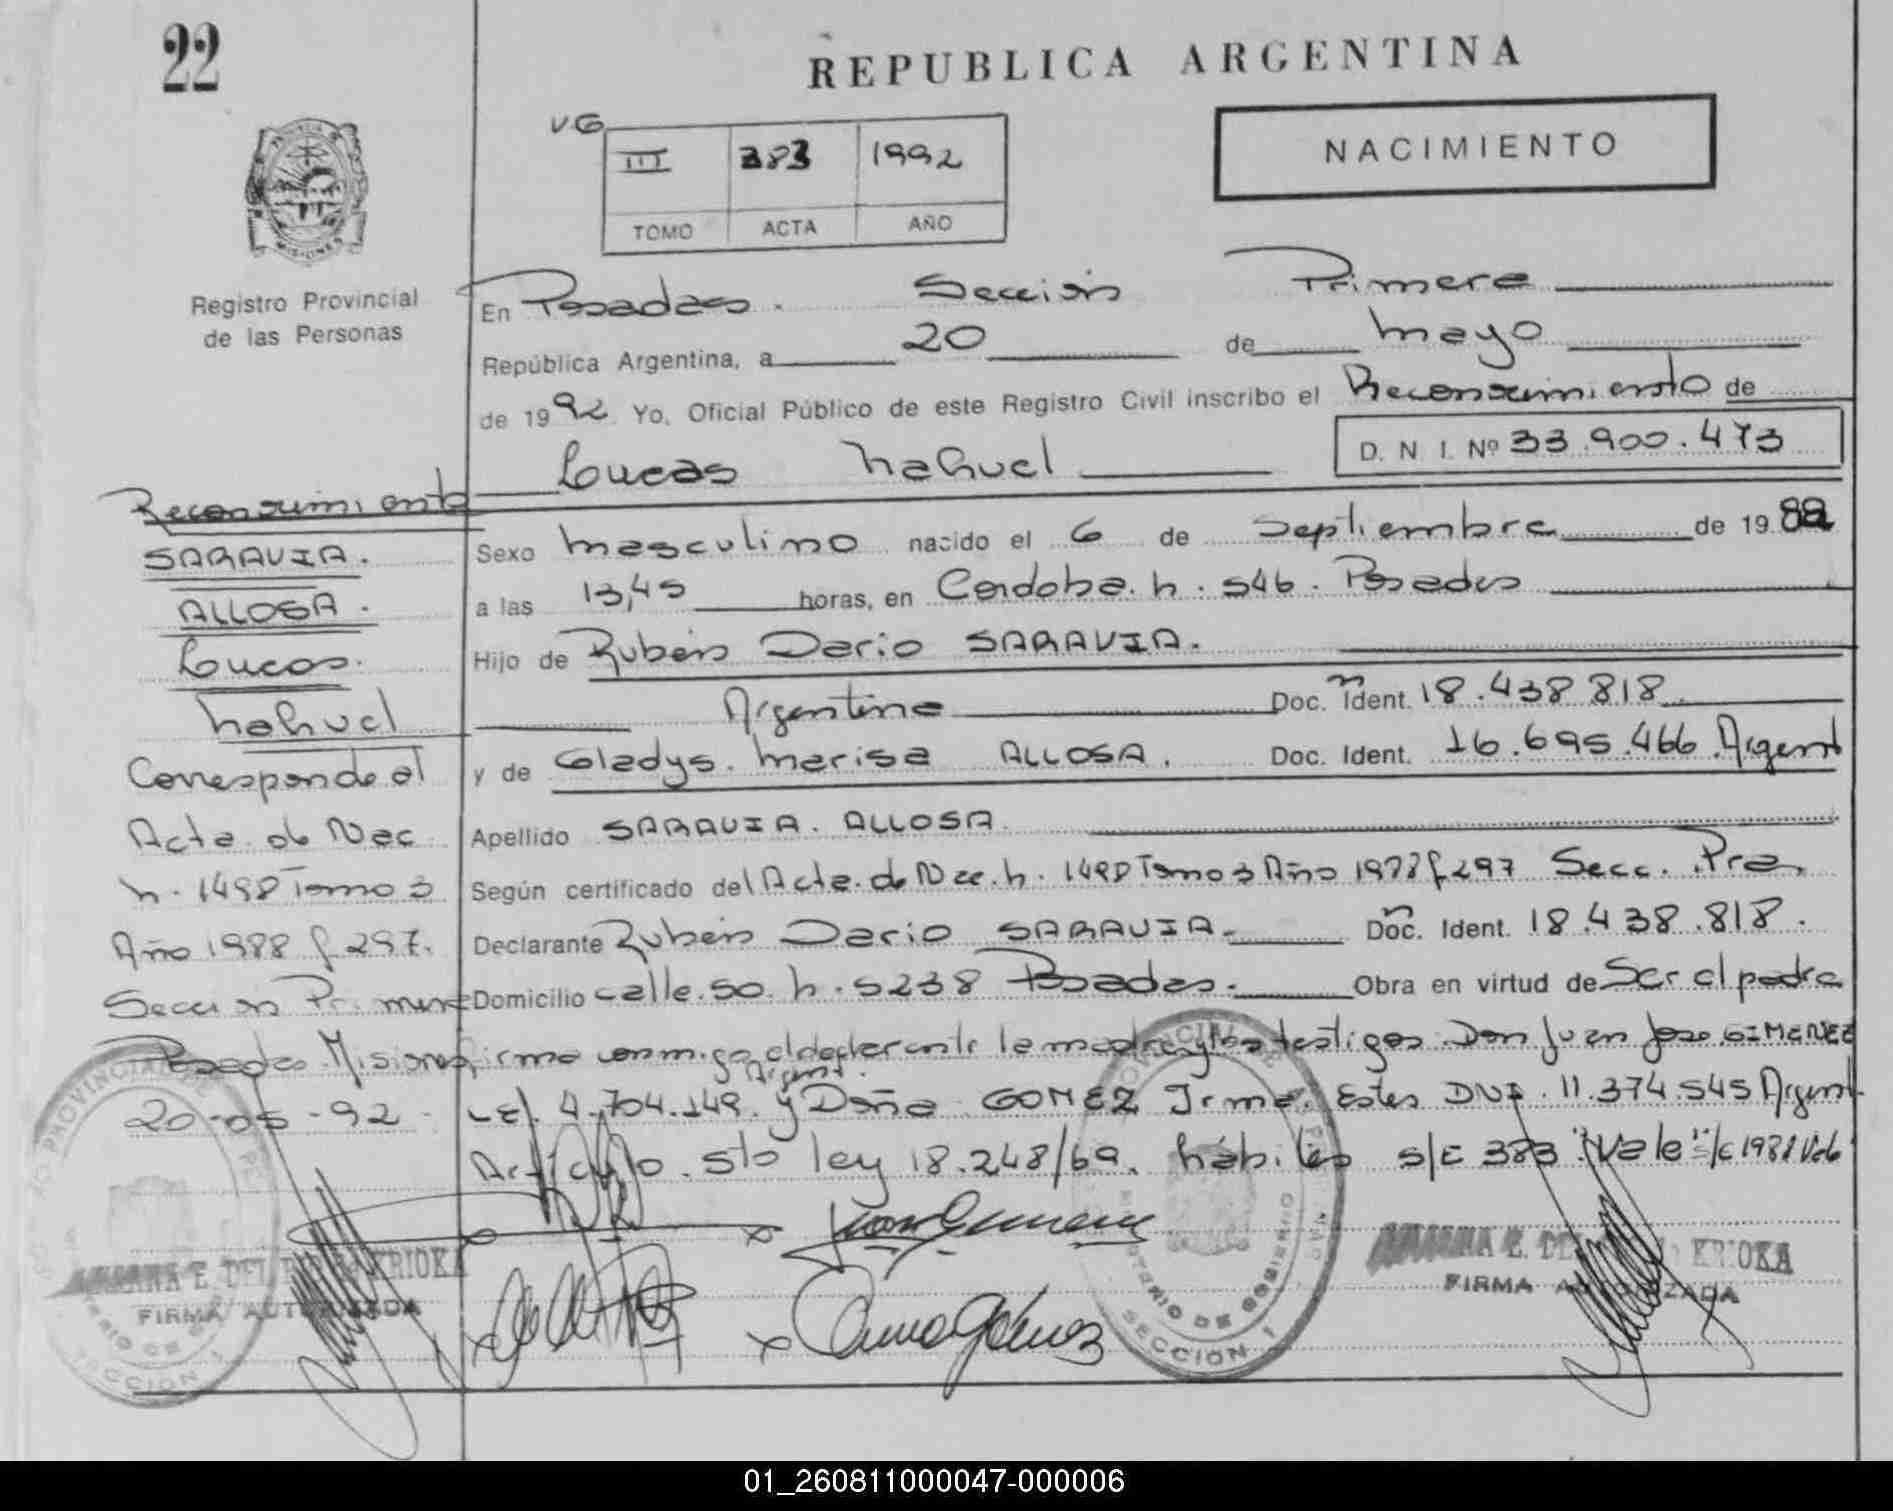 22
REPUBLICA ARGENTINA
VG
III 383 1992
TOMO ACTA AÑO
NACIMIENTO
MISIONES
Registro Provincial
de las Personas
En Posadas. Sección Primera
República Argentina, a 20 de mayo
de 1992 Yo, Oficial Público de este Registro Civil inscribo el Reconocimiento de
Lucas Nahuel D. N. I. Nº 33.900.473
Reconocimiento
SARAVIA.
ALLOSA.
Lucas.
Nahuel
Corresponde al
Acta de Nac
n. 1498 Tomo 3
Año 1988 f 297.
Sección Primera
Posadas Misiones
20-05-92
Sexo masculino nacido el 6 de Septiembre de 1988
a las 13,45 horas, en Cordoba. n. 546. Posadas
Hijo de Rubén Dario SARAVIA.
Argentino Doc. Ident. 18.438.818
y de Gladys. Marisa ALLOSA. Doc. Ident. 16.695.466. Argent
Apellido SARAVIA. ALLOSA.
Según certificado del Acta. de Nac. n. 1498 Tomo 3 Año 1988 f 297 Secc. Pra.
Declarante Rubén Dario SARAVIA. Doc. Ident. 18.438.818.
Domicilio calle. 50. n. 5238 Posadas. Obra en virtud de Ser el padre
firma conmigo el declarante la madre y los testigos Don Juan Jose GIMENEZ
Argent.
LE. 4.704.149. y Doña GOMEZ Irma. Estes DNI. 11.374.545 Argent.
Artículo. 5to ley 18.248/69. hábiles s/E 383 "Vale" s/e 1988 Vale
Juan Gimenez
Irma Gómez
E. DEL KRIOKA
FIRMA AUTORIZADA
E. DEL KRIOKA
FIRMA AUTORIZADA
SECCION 1
SECCION 1
01_260811000047-000006